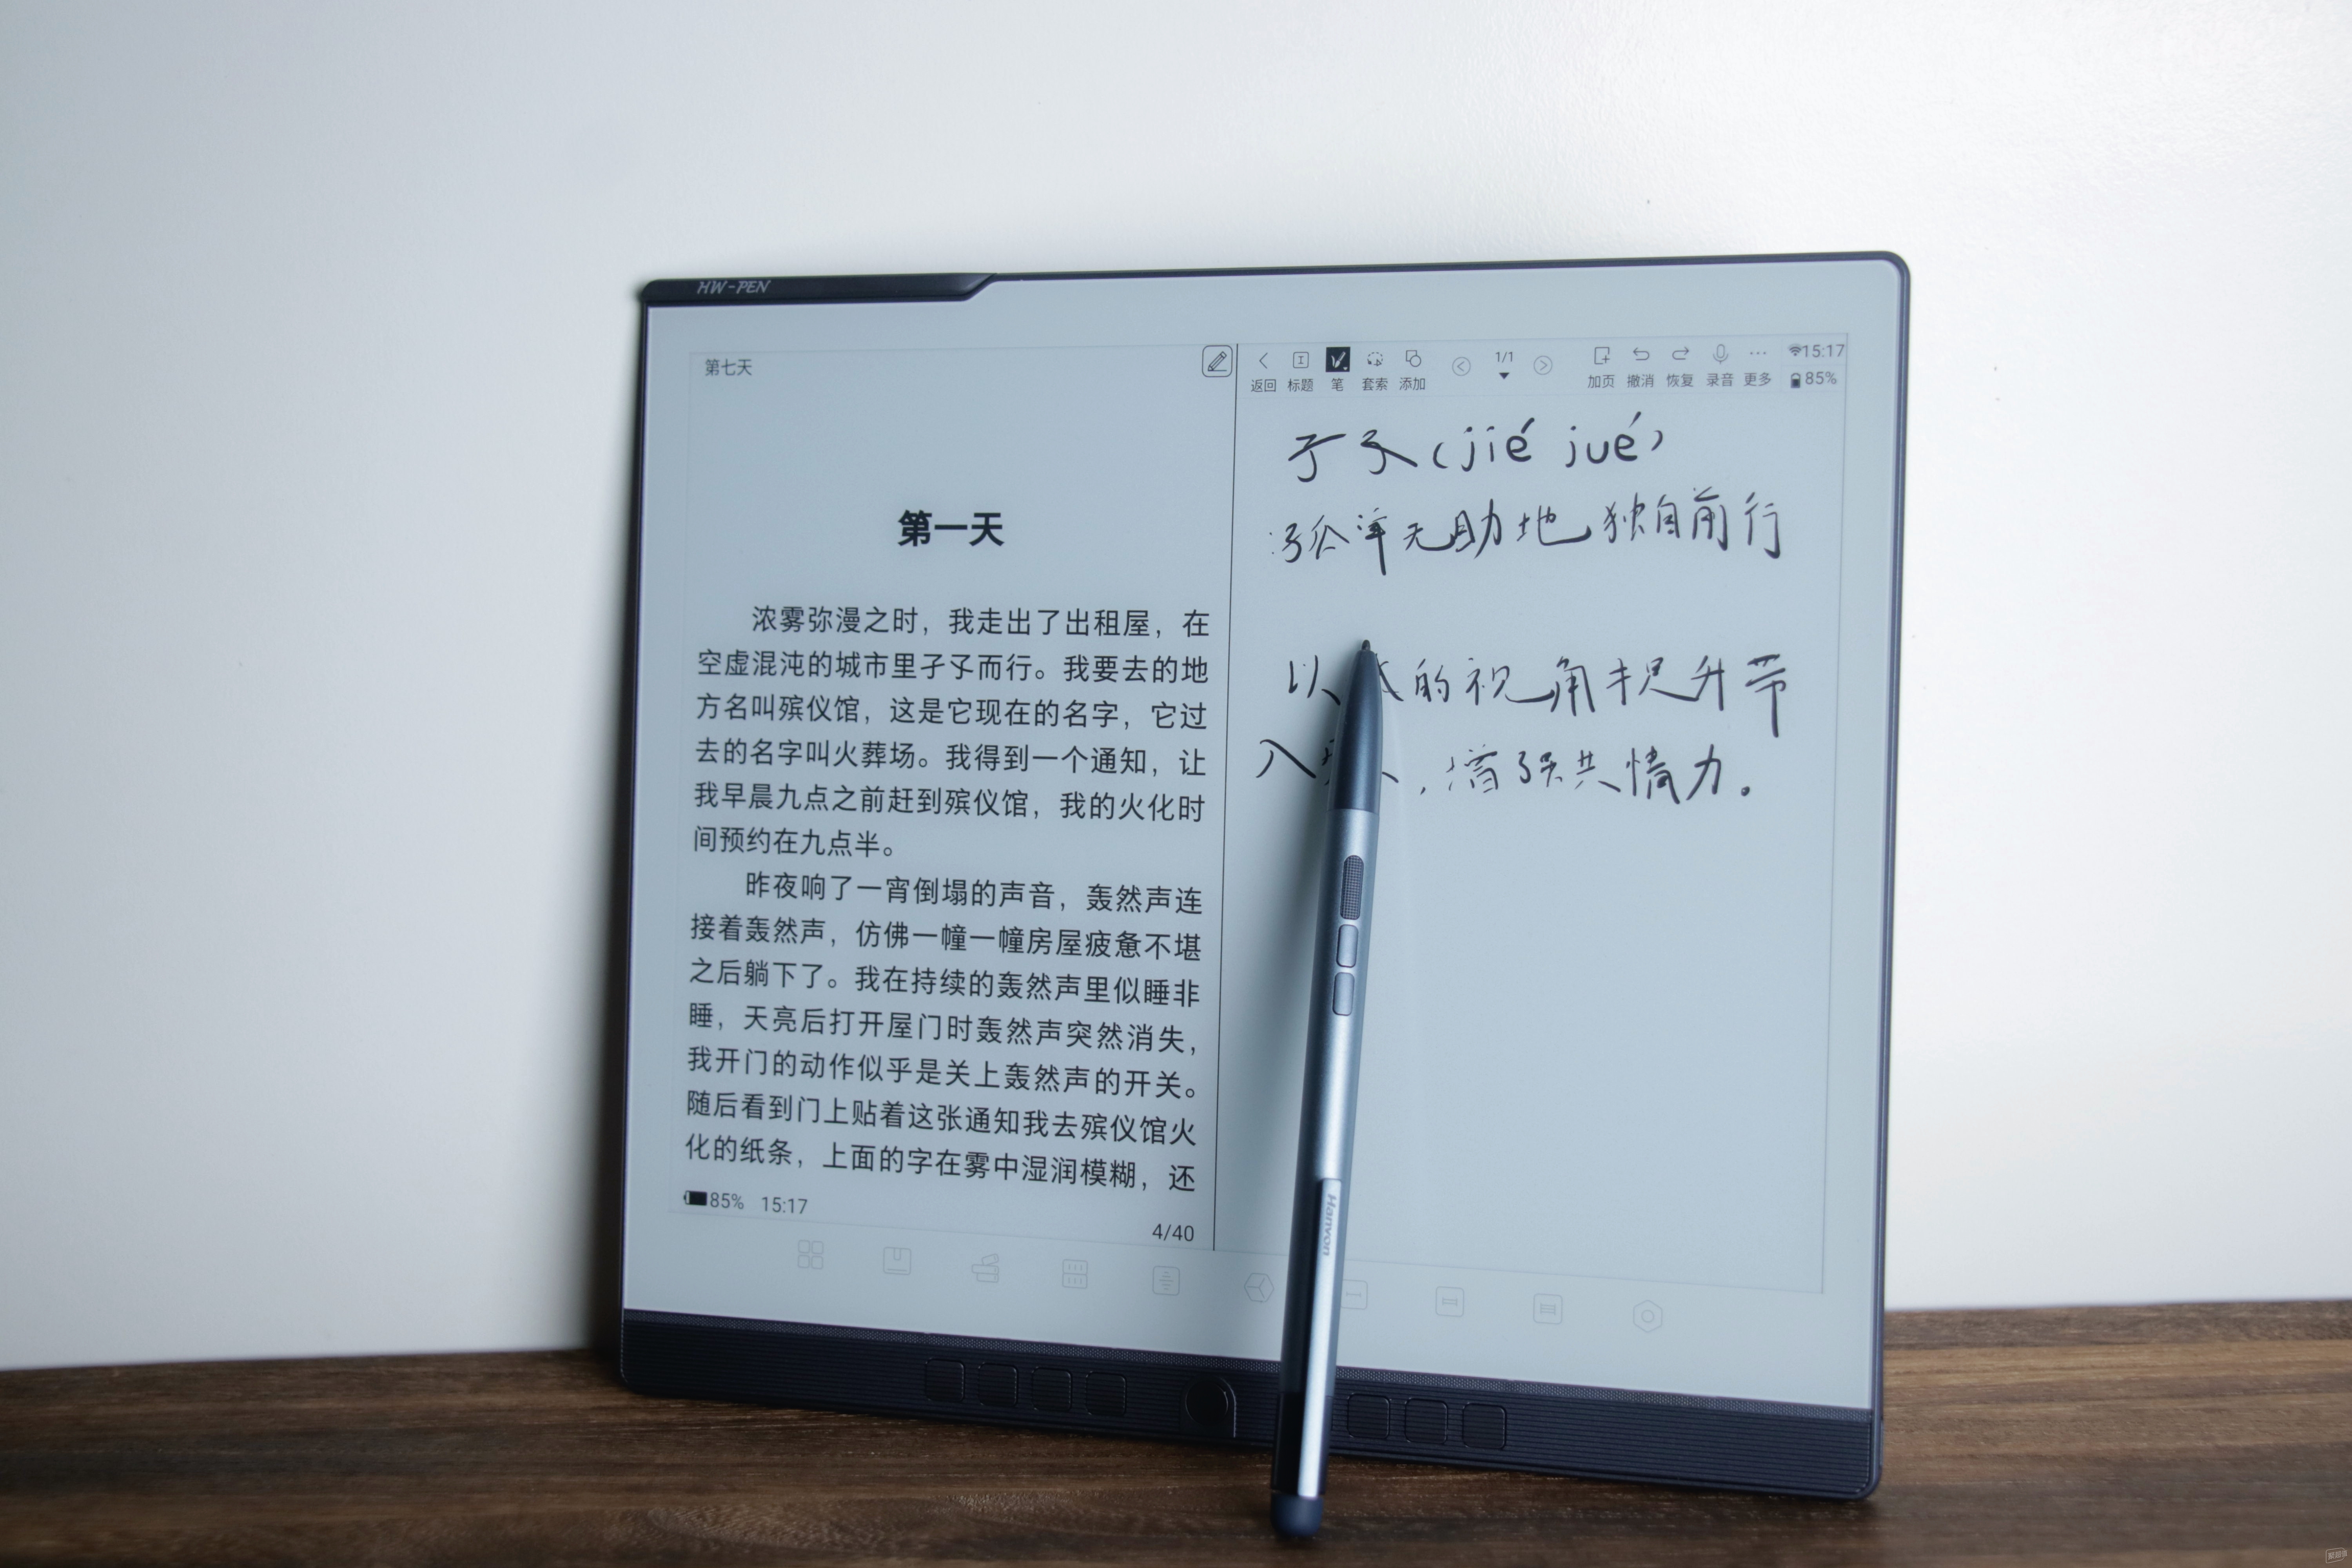 HW-PEN
第七天
第一天
浓雾弥漫之时，我走出了出租屋，在
空虚混沌的城市里孑孓而行。我要去的地
方名叫殡仪馆，这是它现在的名字，它过
去的名字叫火葬场。我得到一个通知，让
我早晨九点之前赶到殡仪馆，我的火化时
间预约在九点半。
昨夜响了一宵倒塌的声音，轰然声连
接着轰然声，仿佛一幢一幢房屋疲惫不堪
之后躺下了。我在持续的轰然声里似睡非
睡，天亮后打开屋门时轰然声突然消失，
我开门的动作似乎是关上轰然声的开关。
随后看到门上贴着这张通知我去殡仪馆火
化的纸条，上面的字在雾中湿润模糊，还
85% 15:17
4/40
1/1
15:17
返回 标题 笔 套索 添加 加页 撤消 恢复 录音 更多 85%
孑孓(jié jué)
:孤单无助地独自前行
以 的视角提升带
入 ，增强共情力。
Hanvon